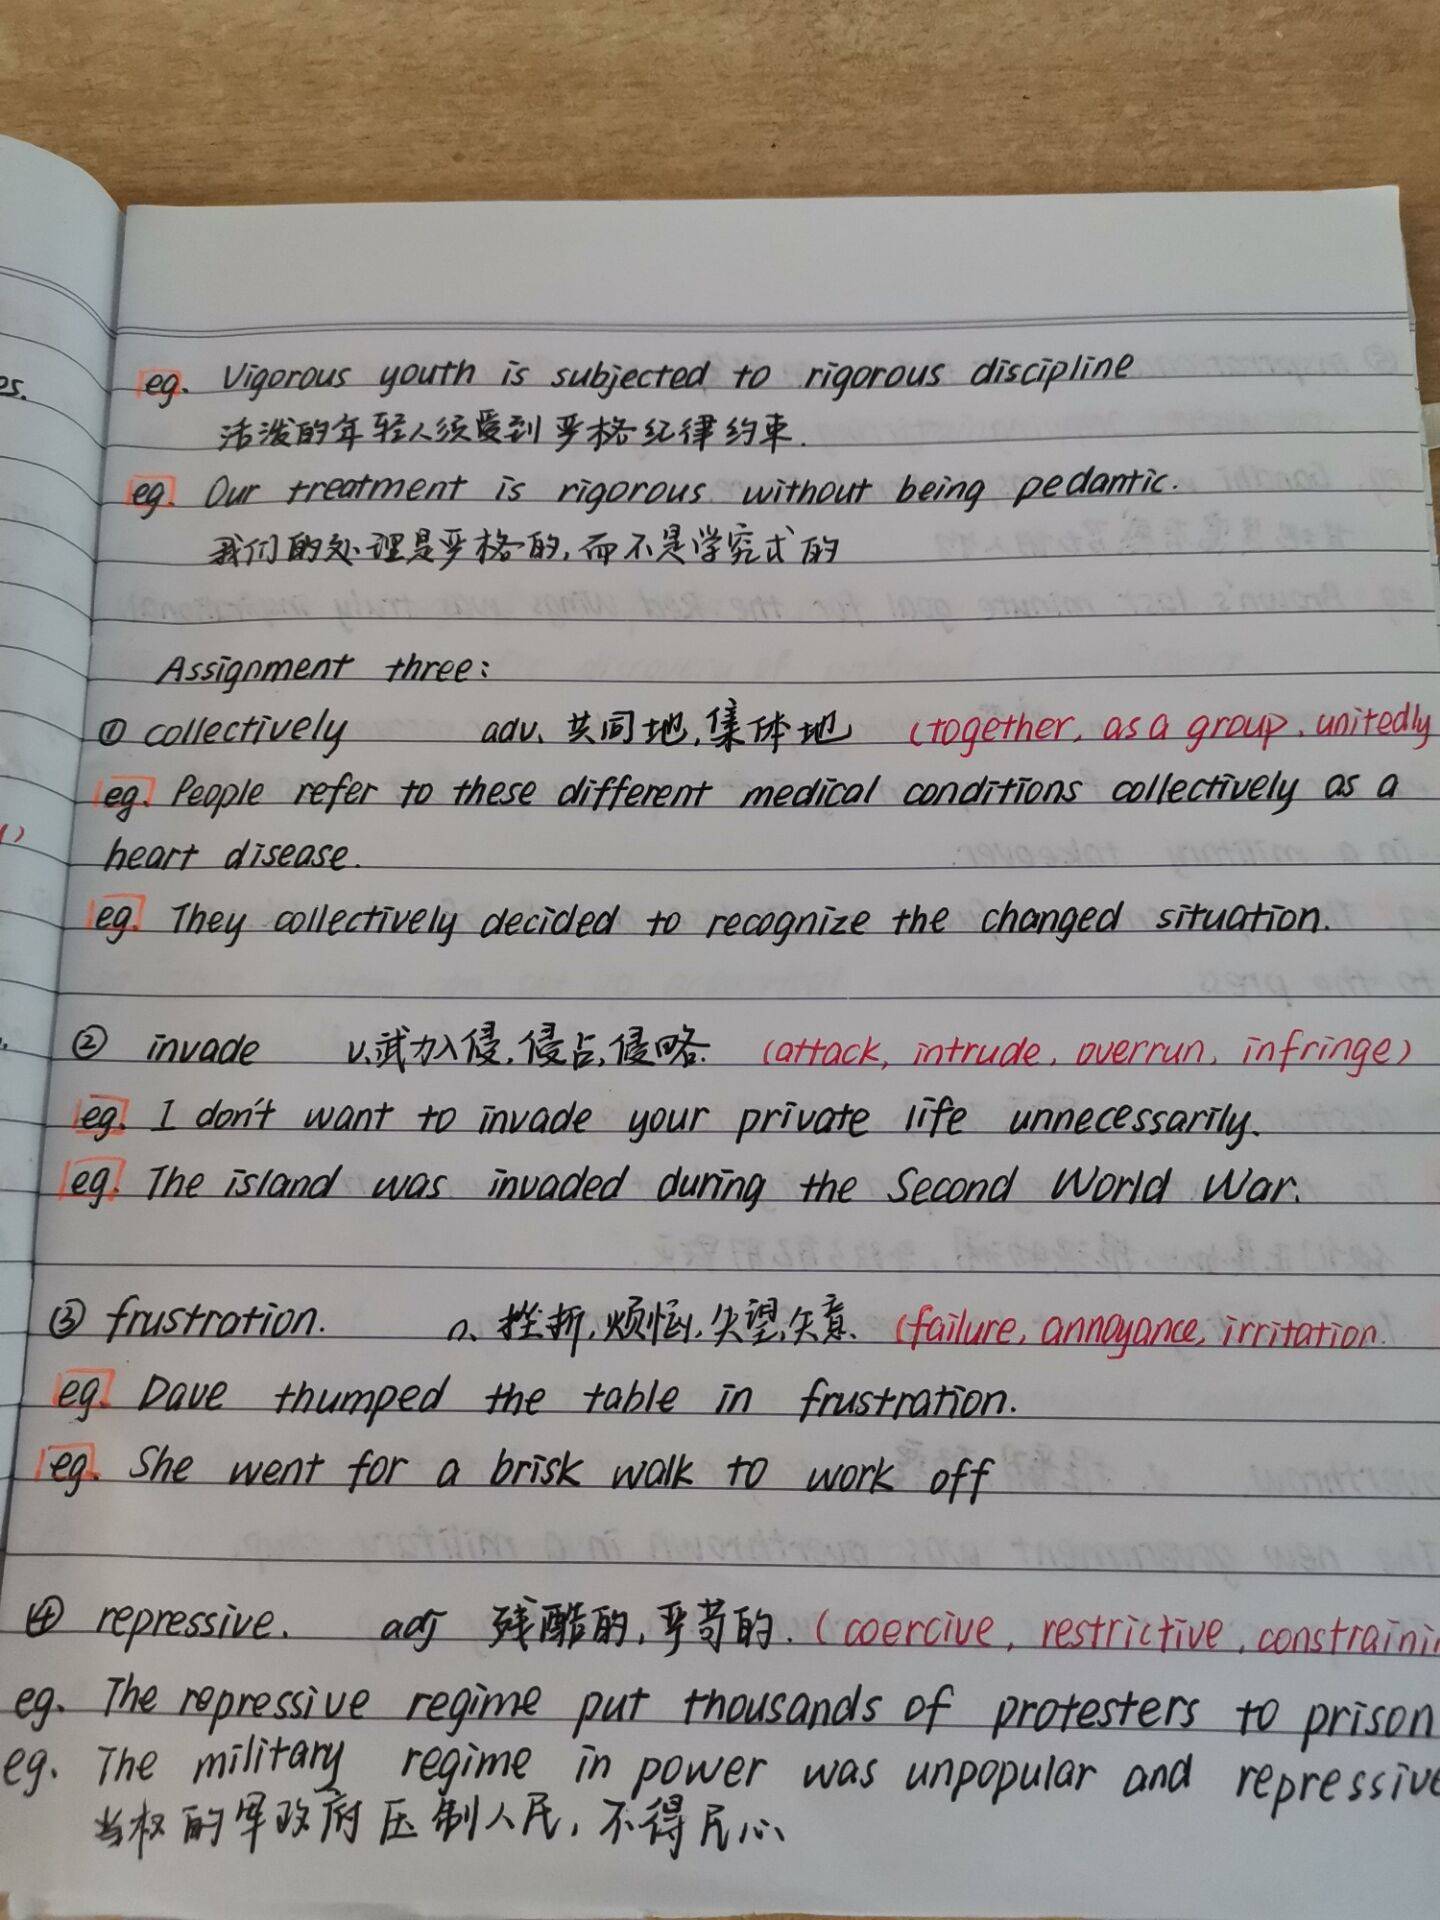 es.
eg. Vigorous youth is subjected to rigorous discipline
活泼的年轻人须受到严格纪律约束.
eg. Our treatment is rigorous without being pedantic.
我们的处理是严格的,而不是学究式的
Assignment three:
① collectively adv. 共同地,集体地 (together, as a group, unitedly
eg. People refer to these different medical conditions collectively as a
heart disease.
eg. They collectively decided to recognize the changed situation.
② invade v.武力入侵,侵占,侵略. (attack, intrude, overrun, infringe)
eg. I don't want to invade your private life unnecessarily.
eg. The island was invaded during the Second World War.
③ frustration. n. 挫折,烦恼,失望,失意. (failure, annoyance, irritation.
eg. Dave thumped the table in frustration.
eg. She went for a brisk walk to work off
④ repressive. adj 残酷的,严苛的. (coercive, restrictive, constraini
eg. The repressive regime put thousands of protesters to prison
eg. The military regime in power was unpopular and repressive
当权的军政府压制人民,不得民心